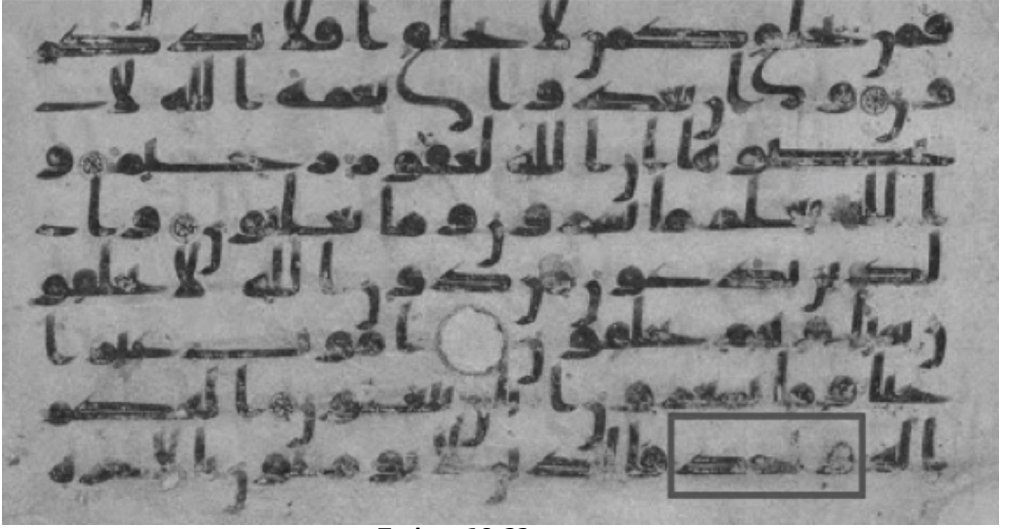 فمن يخلق كمن لا يخلق افلا تذكر
ون وان تعدوا نعمه الله لا ت
حصوها ان الله لغفور رحيم و
الله يعلم ما تسرون وما تعلنون والـ
ذين يدعون من دون الله لا يخلقو
ن شيا وهم يخلقون اموت غير ا
حيا وما يشعرون ايان يبعثون الهكم
اله وحد فالذين لا يومنون بالاخره